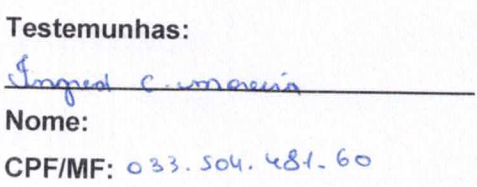 Testemunhas:
Ingred C. moreira
Nome:
CPF/MF: 033.504.481-60